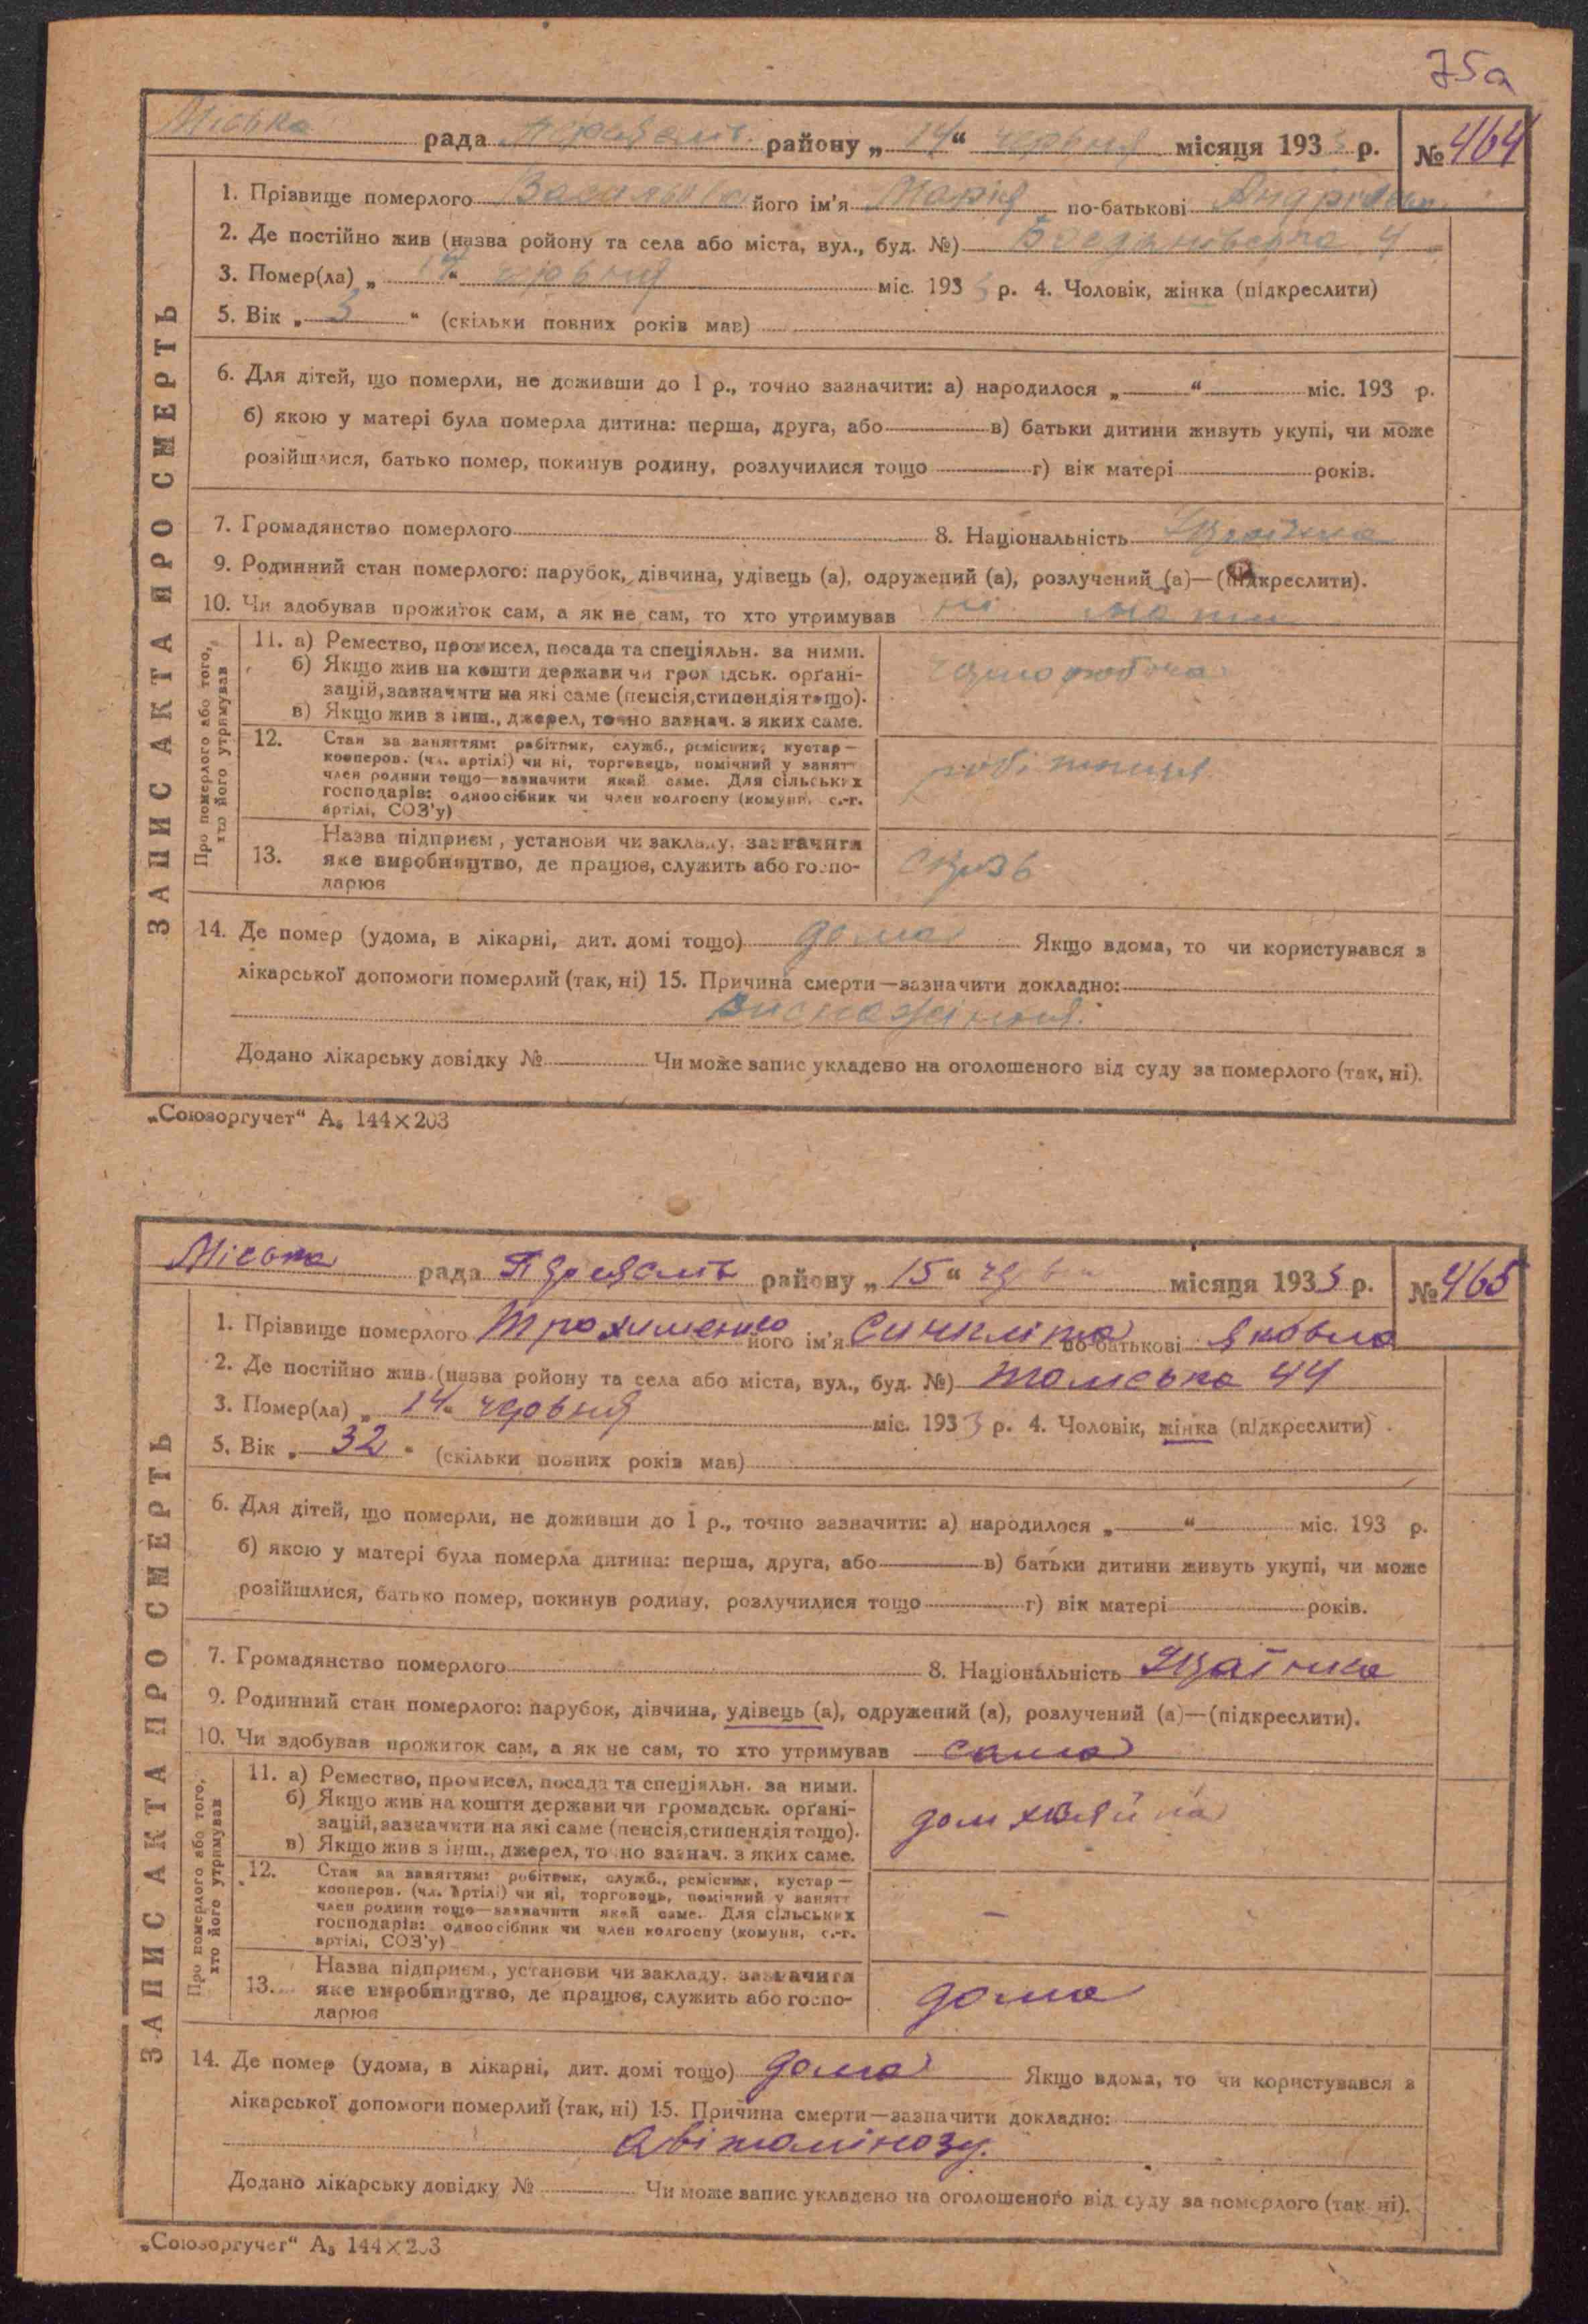 75а
Міська рада Переяслів. району „ 14 “ червня місяця 1933 р. № 464
1. Прізвище померлого його ім'я Марія по-батькові
2. Де постійно жив (назва ройону та села або міста, вул., буд. №) 4
3. Помер(ла) „ 14 “ червня міс. 1933 р. 4. Чоловік, жінка (підкреслити)
5. Вік „ 3 “ (скільки повних років мав)
6. Для дітей, що померли, не доживши до 1 р., точно зазначити: а) народилося „ “ міс. 193 р.
б) якою у матері була померла дитина: перша, друга, або в) батьки дитини живуть укупі, чи може
розійшлися, батько помер, покинув родину, розлучилися тощо г) вік матері років.
7. Громадянство померлого 8. Національність
9. Родинний стан померлого: парубок, дівчина, удівець (а), одружений (а), розлучений (а)—(підкреслити).
10. Чи здобував прожиток сам, а як не сам, то хто утримував ні мати
ЗАПИС АКТА ПРО СМЕРТЬ
Про померлого або того,
хто його утримував
11. а) Ремество, промисел, посада та спеціяльн. за ними.
б) Якщо жив на кошти держави чи громадськ. орґані-
зацій, зазначити на які саме (пенсія, стипендія тощо).
в) Якщо жив з інш., джерел, точно зазнач. з яких саме.
12. Стан за заняттям: робітник, служб., ремісник, кустар—
кооперов. (чл. артілі) чи ні, торговець, помічний у занятт
член родини тощо—зазначити який саме. Для сільських
господарів: одноосібник чи член колгоспу (комуни, с.-г.
артілі, СОЗ'у)
робітниця
13. Назва підприєм., установи чи закладу, зазначити
яке виробництво, де працює, служить або госпо-
дарює
14. Де помер (удома, в лікарні, дит. домі тощо) дома Якщо вдома, то чи користувався з
лікарської допомоги померлий (так, ні) 15. Причина смерти—зазначити докладно:
Додано лікарську довідку № Чи може запис укладено на оголошеного від суду за померлого (так, ні).
„Союзоргучет“ А₅ 144×203
Міська рада Переяслів району „ 15 “ черв місяця 1933 р. № 465
1. Прізвище померлого Трохименко його ім'я Синкліта по-батькові Яковла
2. Де постійно жив (назва ройону та села або міста, вул., буд. №) 44
3. Помер(ла) „ 14 “ червня міс. 1933 р. 4. Чоловік, жінка (підкреслити)
5. Вік „ 32 “ (скільки повних років мав)
6. Для дітей, що померли, не доживши до 1 р., точно зазначити: а) народилося „ “ міс. 193 р.
б) якою у матері була померла дитина: перша, друга, або в) батьки дитини живуть укупі, чи може
розійшлися, батько помер, покинув родину, розлучилися тощо г) вік матері років.
7. Громадянство померлого 8. Національність
9. Родинний стан померлого: парубок, дівчина, удівець (а), одружений (а), розлучений (а)—(підкреслити).
10. Чи здобував прожиток сам, а як не сам, то хто утримував сама
ЗАПИС АКТА ПРО СМЕРТЬ
Про померлого або того,
хто його утримував
11. а) Ремество, промисел, посада та спеціяльн. за ними.
б) Якщо жив на кошти держави чи громадськ. орґані-
зацій, зазначити на які саме (пенсія, стипендія тощо).
в) Якщо жив з інш., джерел, точно зазнач. з яких саме.
12. Стан за заняттям: робітник, служб., ремісник, кустар—
кооперов. (чл. артілі) чи ні, торговець, помічний у занятт
член родини тощо—зазначити який саме. Для сільських
господарів: одноосібник чи член колгоспу (комуни, с.-г.
артілі, СОЗ'у)
–
13. Назва підприєм., установи чи закладу, зазначити
яке виробництво, де працює, служить або госпо-
дарює
дома
14. Де помер (удома, в лікарні, дит. домі тощо) дома Якщо вдома, то чи користувався з
лікарської допомоги померлий (так, ні) 15. Причина смерти—зазначити докладно:
авітамінозу.
Додано лікарську довідку № Чи може запис укладено на оголошеного від суду за померлого (так, ні).
„Союзоргучет“ А₅ 144×203